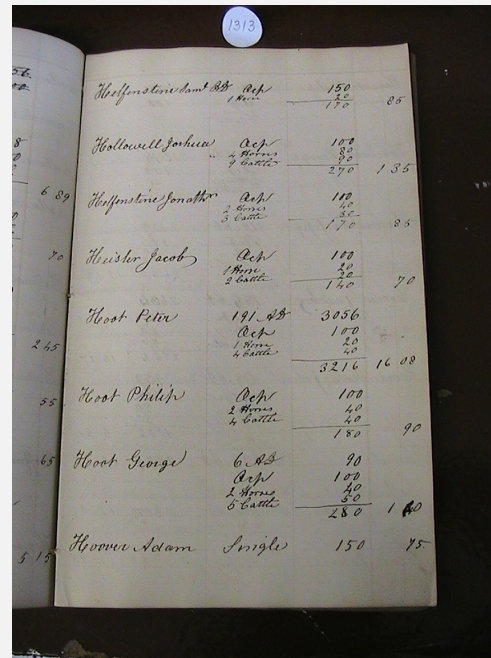 1313
Helfenstine Saml Occp 150
1 Horse 20
170 85
Hollowell Joshua Occp 100
4 Horses 80
9 Cattle 90
270 1 35
Helfenstine Jonathn Occp 100
2 Horses 40
3 Cattle 30
170 85
Heister Jacob Occp 100
1 Horse 20
2 Cattle 20
140 70
Hoot Peter 191 Ad 3056
Occp 100
1 Horse 20
4 Cattle 40
3216 16 08
Hoot Philip Occp 100
2 Horses 40
4 Cattle 40
180 90
Hoot George 6 Ad 90
Occp 100
2 Horses 40
5 Cattle 50
280 1 40
Hoover Adam Single 150 75
6 89
70
2 45
55
65
5 15